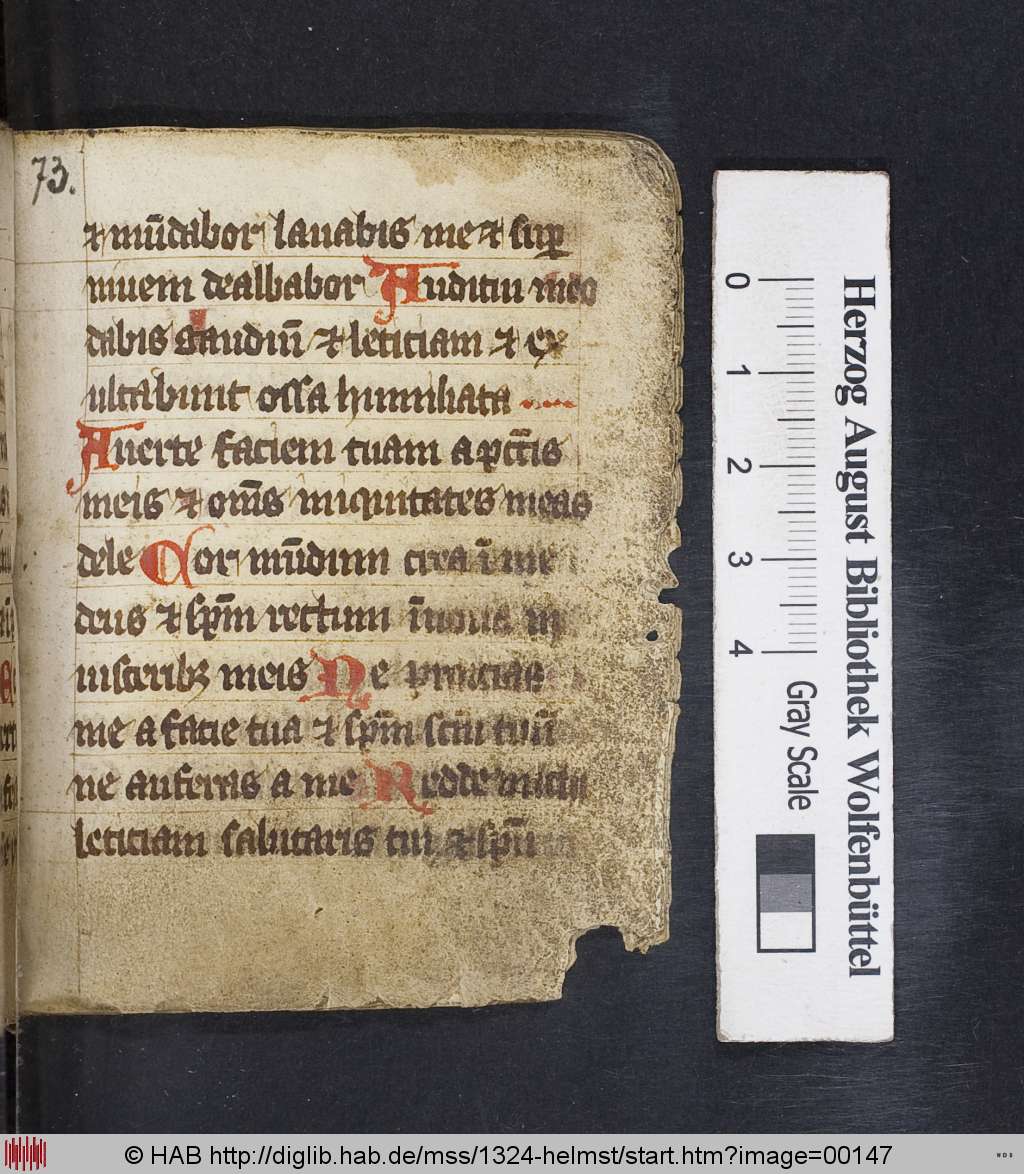 73.
⁊ mu̅dabor lauabis me ⁊ sup̲
niuem dealbabor Auditui meo
dabis Gaudiu̅ ⁊ leticiam ⁊ ex
ultabunt ossa humiliata
Auerte faciem tuam a pcc̅is
meis ⁊ om̅s iniquitates meas
dele Cor mu̅dum crea i̅ me
deus ⁊ sp̅m rectum i̅noua in
uisceribꝫ meis Ne proicias
me a facie tua ⁊ sp̅m sc̅m tuu̅
ne auferas a me Redde michi
leticiam salutaris tui ⁊ sp̅u
0
1
2
3
4
Gray Scale
Herzog August Bibliothek Wolfenbüttel
© HAB http://diglib.hab.de/mss/1324-helmst/start.htm?image=00147